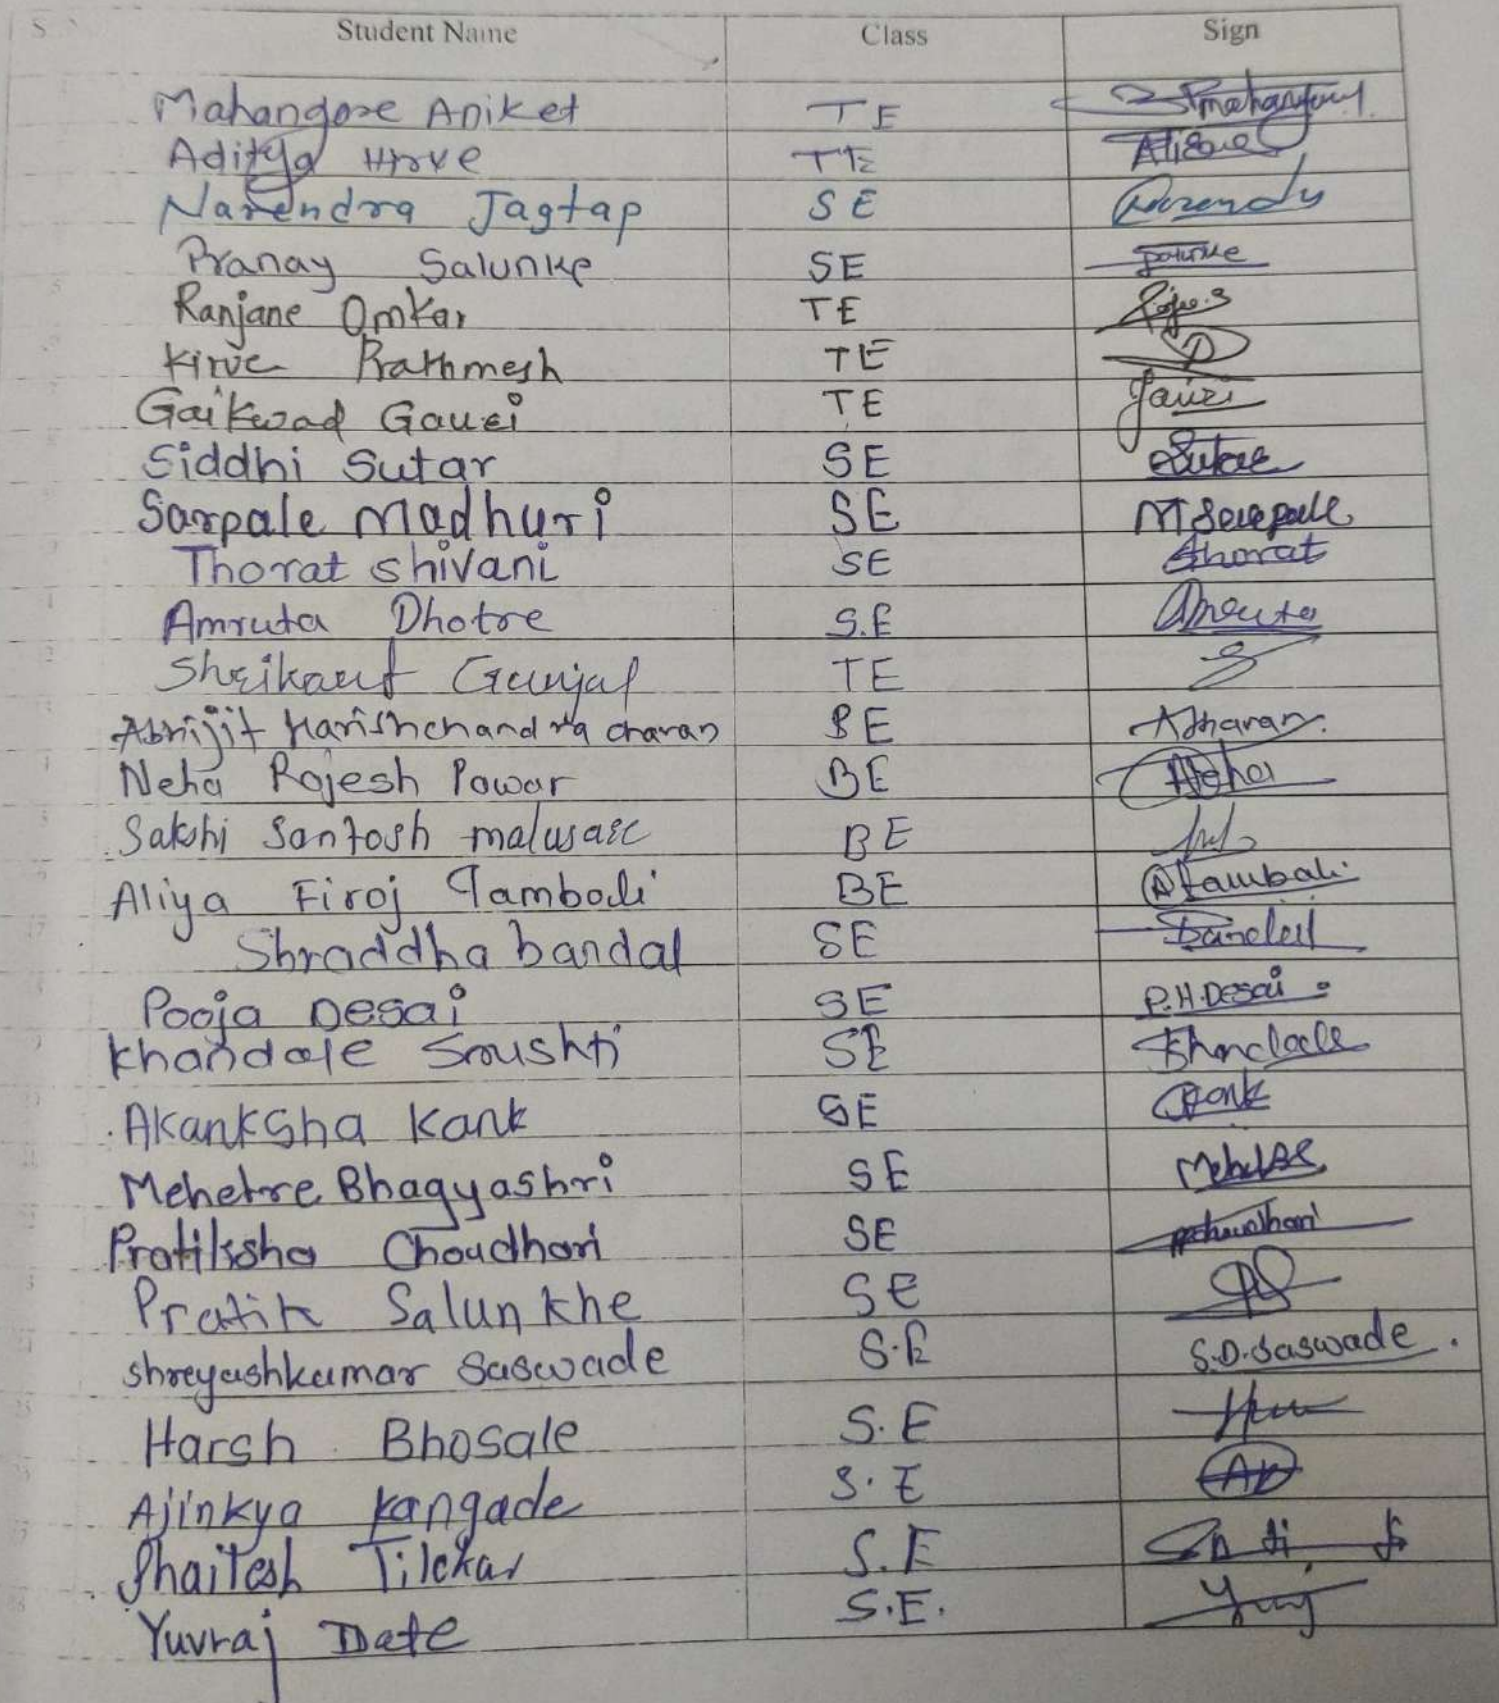 Student Name Class Sign
Mahangore Aniket TE
Aditya Hirve TE
Narendra Jagtap SE
Pranay Salunke SE Salunke
Ranjane Omkar TE
Kirve Prathmesh TE
Gaikwad Gauri TE Gauri
Siddhi Sutar SE Sutar
Sarpale Madhuri SE M Sarpale
Thorat Shivani SE Thorat
Amruta Dhotre S.E Amruta
Shrikant Gunjal TE
Abhijit Harishchandra Chavan BE
Neha Rajesh Pawar BE Neha
Sakshi Santosh malusare BE
Aliya Firoj Tamboli BE
Shraddha bandal SE
Pooja Desai SE P.H.Desai
Khandale Srushti SE
Akanksha Kank SE
Mehetre Bhagyashri SE
Pratiksha Choudhari SE
Pratik Salunkhe SE
shreyashkumar Saswade S.E S.D.Saswade.
Harsh Bhosale S.E
Ajinkya Kangade S.E
Shailesh Tilekar S.E
Yuvraj Date S.E.